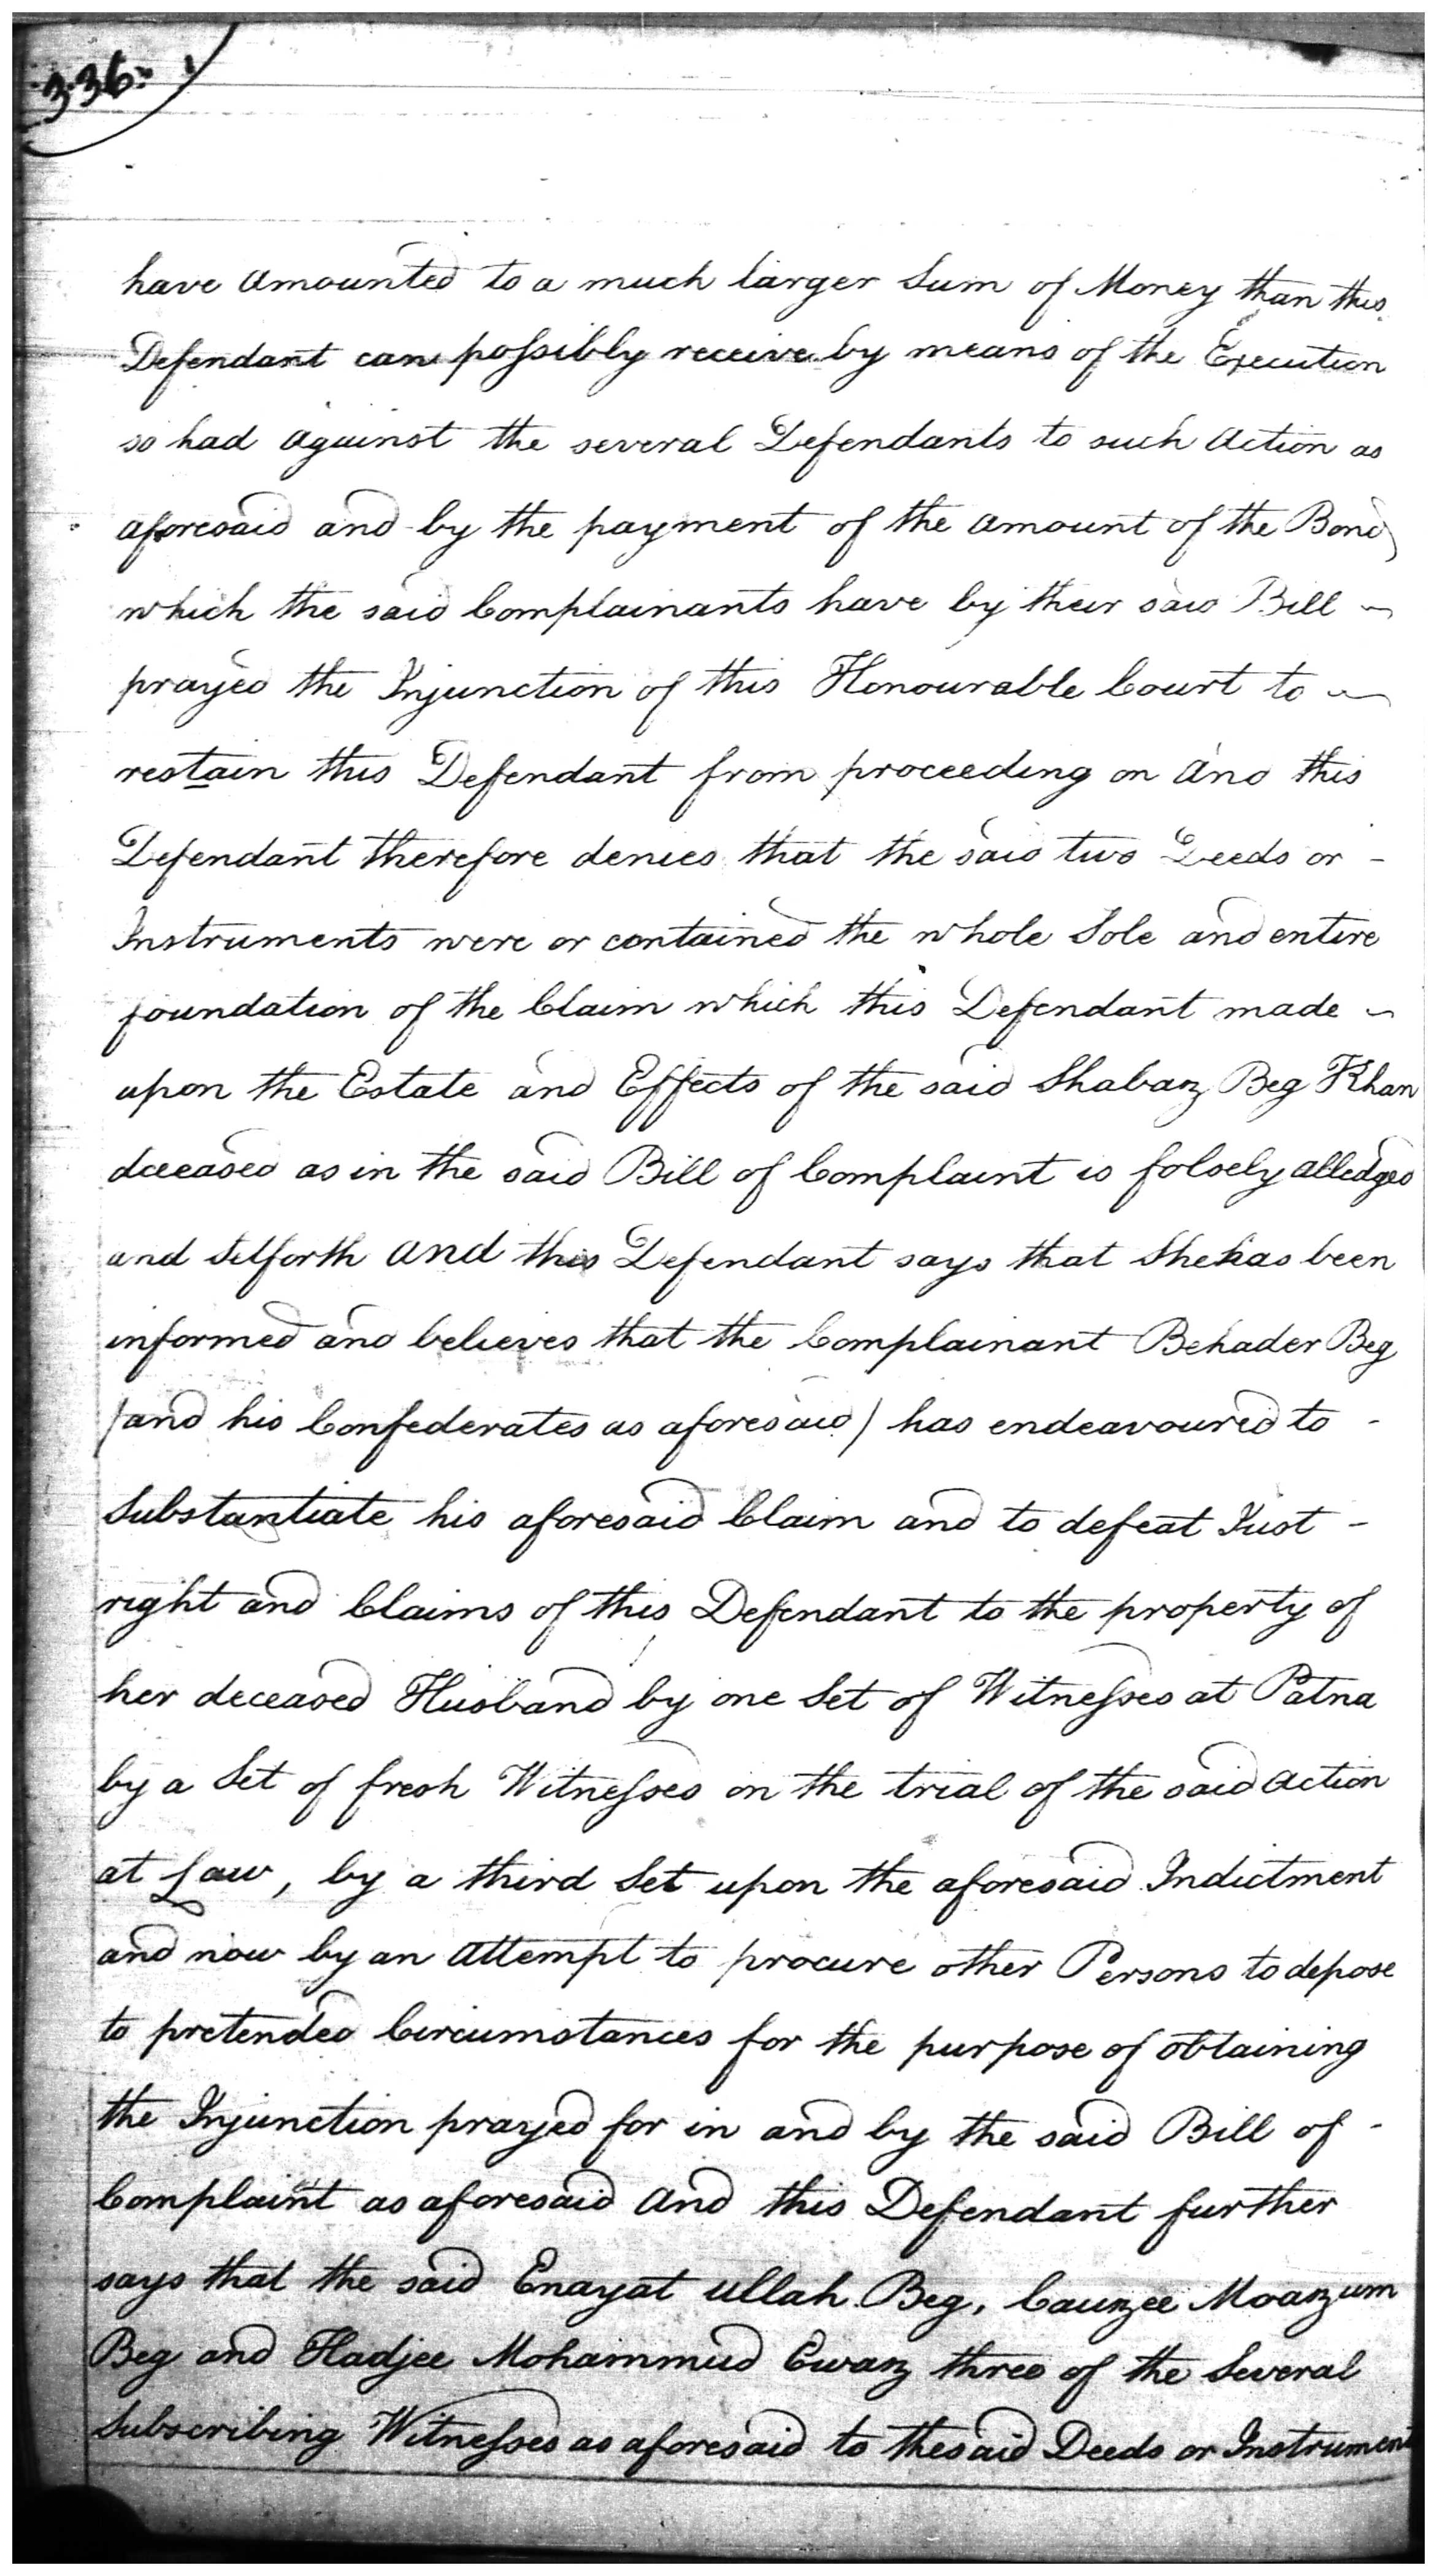 336.
have amounted to a much larger Sum of Money than this
Defendant can possibly receive by means of the Execution
so had against the several Defendants to such Action as
aforesaid and by the payment of the amount of the Bond
which the said Complainants have by their said Bill ~
prayed the Injunction of this Honourable Court to ~
restain this Defendant from proceeding on And this
Defendant therefore denies that the said two Deeds or -
Instruments were or contained the whole Sole and entire
foundation of the Claim which this Defendant made ~
upon the Estate and Effects of the said Shabaz Beg Khan
deceased as in the said Bill of Complaint is folsely alledged
and Setforth and this Defendant says that She has been
informed and believes that the Complainant Behader Beg
/and his Confederates as aforesaid/ has endeavoured to -
Substantiate his aforesaid Claim and to defeat Just -
right and Claims of this Defendant to the property of
her deceased Husband by one Set of Witnesses at Patna
by a Set of fresh Witnesses on the trial of the said Action
at Law, by a third Set upon the aforesaid Indictment
and now by an Attempt to procure other Persons to depose
to pretended Circumstances for the purpose of obtaining
the Injunction prayed for in and by the said Bill of -
Complaint as aforesaid And this Defendant further
says that the said Enayat ullah Beg, Cauzee Moazum
Beg and Hadjee Mohammud Ewaz three of the Several
Subscribing Witnesses as aforesaid to the said Deeds or Instrument